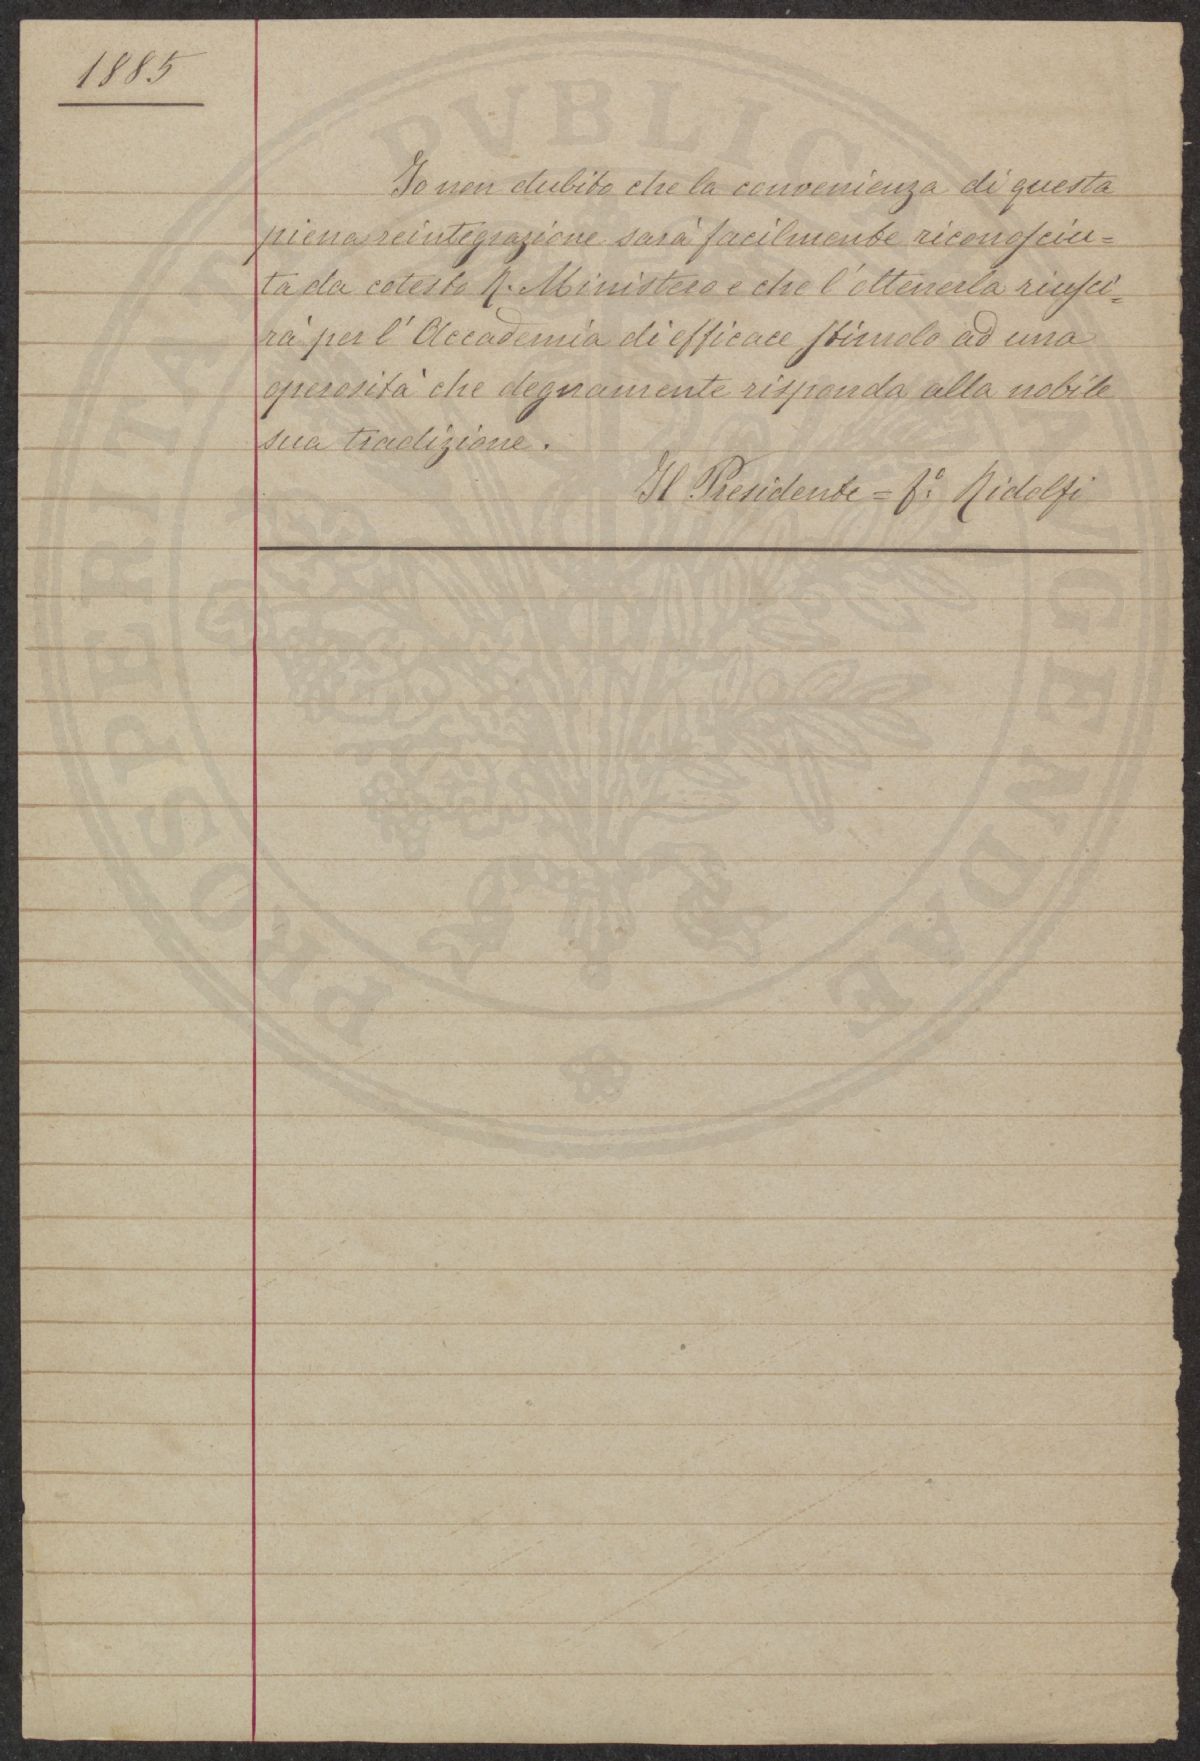 1885
Io non dubito che la convenienza di questa
piena reintegrazione sarà facilmente riconosciu=
ta da cotesto R. Ministero e che l'ottenerla riusci=
rà per l'Accademia di efficace stimolo ad una
operosità che degnamente risponda alla nobile
sua tradizione.
Il Presidente = f.° Ridolfi
PROSPERITATI PVBLICAE AVGENDAE